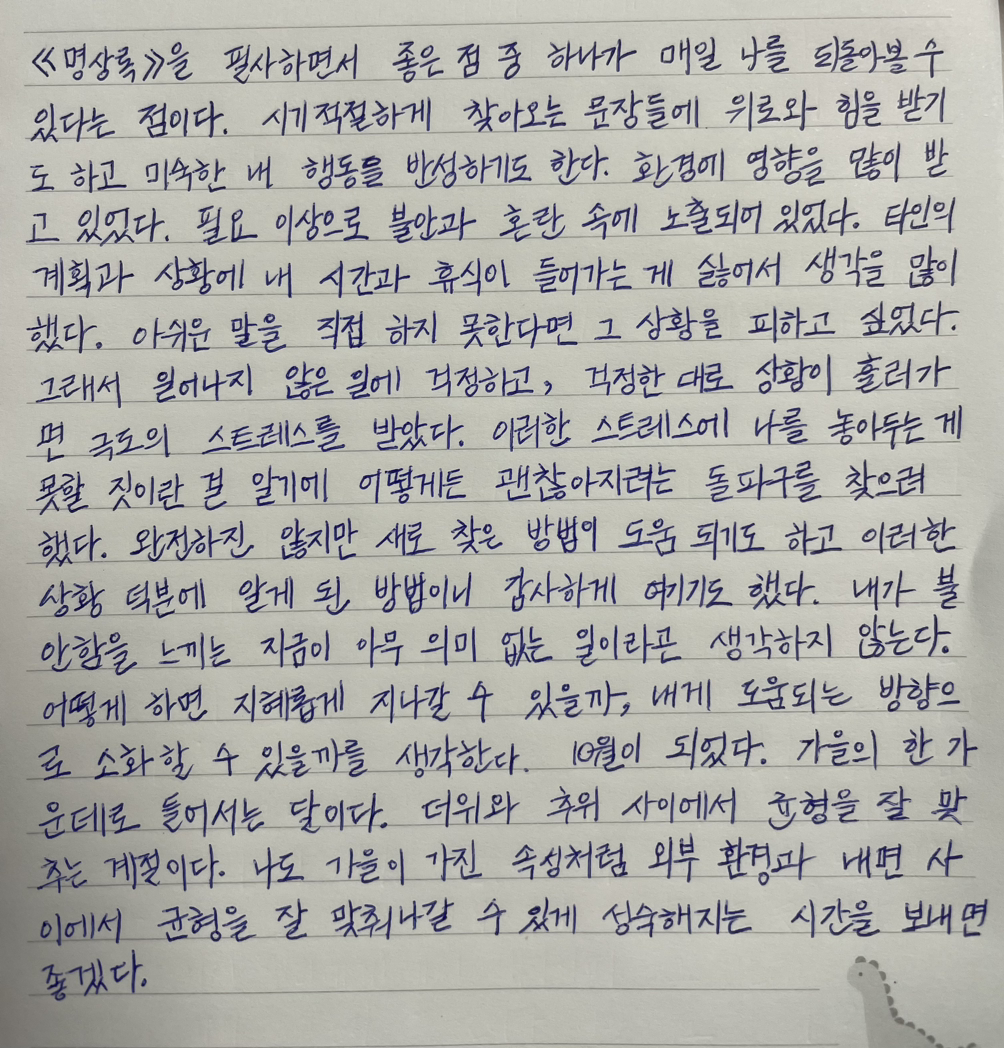 《명상록》을 필사하면서 좋은 점 중 하나가 매일 나를 되돌아볼 수
있다는 점이다. 시기적절하게 찾아오는 문장들에 위로와 힘을 받기
도 하고 미숙한 내 행동을 반성하기도 한다. 환경에 영향을 많이 받
고 있었다. 필요 이상으로 불안과 혼란 속에 노출되어 있었다. 타인의
계획과 상황에 내 시간과 휴식이 들어가는 게 싫어서 생각을 많이
했다. 아쉬운 말을 직접 하지 못한다면 그 상황을 피하고 싶었다.
그래서 일어나지 않은 일에 걱정하고, 걱정한 대로 상황이 흘러가
면 극도의 스트레스를 받았다. 이러한 스트레스에 나를 놓아두는 게
못할 짓이란 걸 알기에 어떻게든 괜찮아지려는 돌파구를 찾으려
했다. 완전하진 않지만 새로 찾은 방법이 도움 되기도 하고 이러한
상황 덕분에 알게 된 방법이니 감사하게 여기기도 했다. 내가 불
안함을 느끼는 지금이 아무 의미 없는 일이라곤 생각하지 않는다.
어떻게 하면 지혜롭게 지나갈 수 있을까, 내게 도움되는 방향으
로 소화할 수 있을까를 생각한다. 10월이 되었다. 가을의 한 가
운데로 들어서는 달이다. 더위와 추위 사이에서 균형을 잘 맞
추는 계절이다. 나도 가을이 가진 속성처럼 외부 환경과 내면 사
이에서 균형을 잘 맞춰나갈 수 있게 성숙해지는 시간을 보내면
좋겠다.